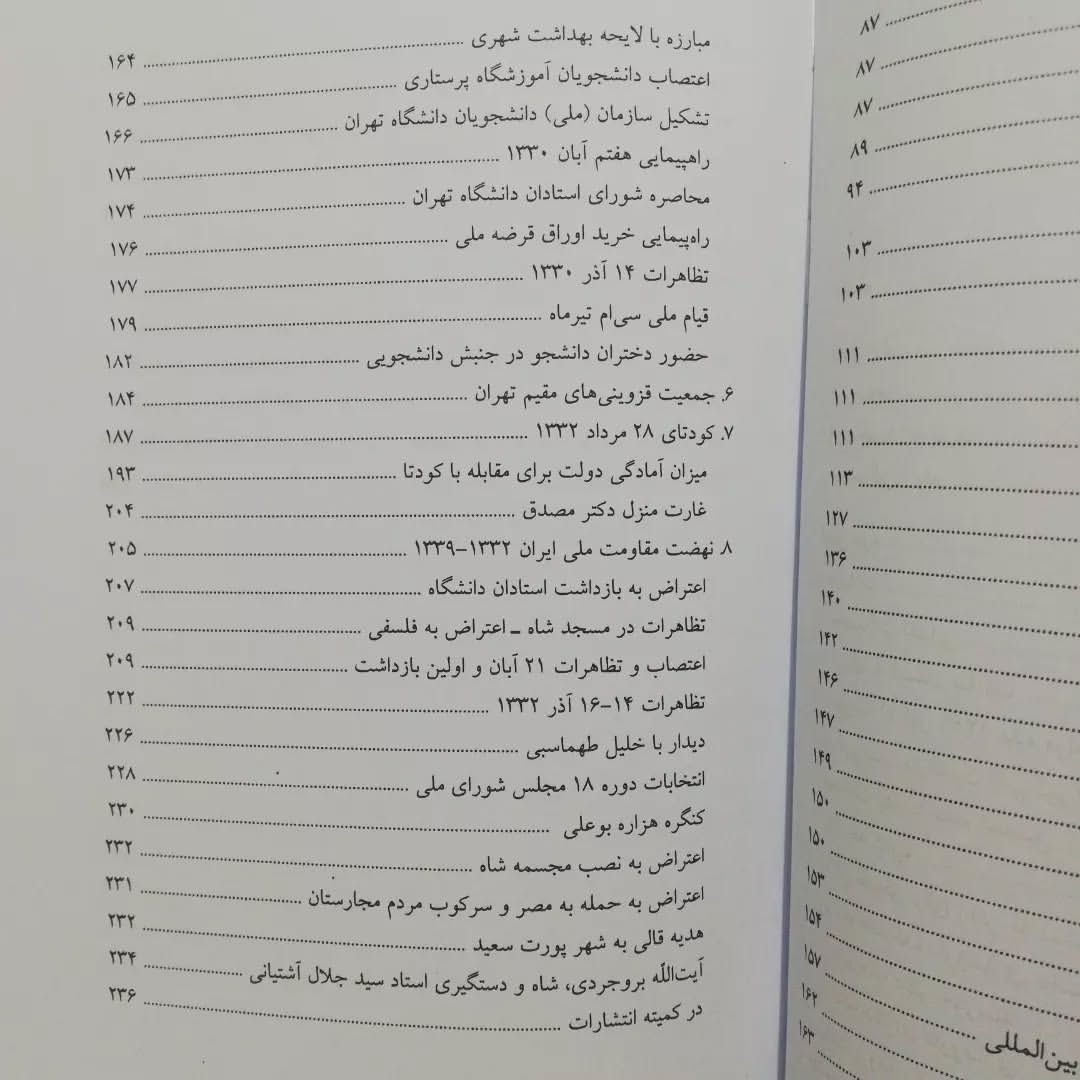 مبارزه با لایحه بهداشت شهری ........ ۱۶۴
اعتصاب دانشجویان آموزشگاه پرستاری ........ ۱۶۵
تشکیل سازمان (ملی) دانشجویان دانشگاه تهران ........ ۱۶۶
راهپیمایی هفتم آبان ۱۳۳۰ ........ ۱۷۳
محاصره شورای استادان دانشگاه تهران ........ ۱۷۴
راه‌پیمایی خرید اوراق قرضه ملی ........ ۱۷۶
تظاهرات ۱۴ آذر ۱۳۳۰ ........ ۱۷۷
قیام ملی سی‌ام تیرماه ........ ۱۷۹
حضور دختران دانشجو در جنبش دانشجویی ........ ۱۸۲
۶. جمعیت قزوینی‌های مقیم تهران ........ ۱۸۴
۷. کودتای ۲۸ مرداد ۱۳۳۲ ........ ۱۸۷
میزان آمادگی دولت برای مقابله با کودتا ........ ۱۹۳
غارت منزل دکتر مصدق ........ ۲۰۴
۸. نهضت مقاومت ملی ایران ۱۳۳۲–۱۳۳۹ ........ ۲۰۵
اعتراض به بازداشت استادان دانشگاه ........ ۲۰۷
تظاهرات در مسجد شاه ـ اعتراض به فلسفی ........ ۲۰۹
اعتصاب و تظاهرات ۲۱ آبان و اولین بازداشت ........ ۲۰۹
تظاهرات ۱۴–۱۶ آذر ۱۳۳۲ ........ ۲۲۲
دیدار با خلیل طهماسبی ........ ۲۲۶
انتخابات دوره ۱۸ مجلس شورای ملی ........ ۲۲۸
کنگره هزاره بوعلی ........ ۲۳۰
اعتراض به نصب مجسمه شاه ........ ۲۳۲
اعتراض به حمله به مصر و سرکوب مردم مجارستان ........ ۲۳۱
هدیه قالی به شهر پورت سعید ........ ۲۳۲
آیت‌اللّه بروجردی، شاه و دستگیری استاد سید جلال آشتیانی ........ ۲۳۴
در کمیته انتشارات ........ ۲۳۶
۸۷
۸۷
۸۷
۸۹
۹۴
۱۰۳
۱۰۳
۱۱۱
۱۱۱
۱۱۱
۱۱۳
۱۲۷
۱۳۶
۱۴۰
۱۴۲
۱۴۶
۱۴۷
۱۴۹
۱۵۰
۱۵۰
۱۵۳
۱۵۴
۱۵۷
بین‌المللی ........ ۱۶۲
۱۶۳